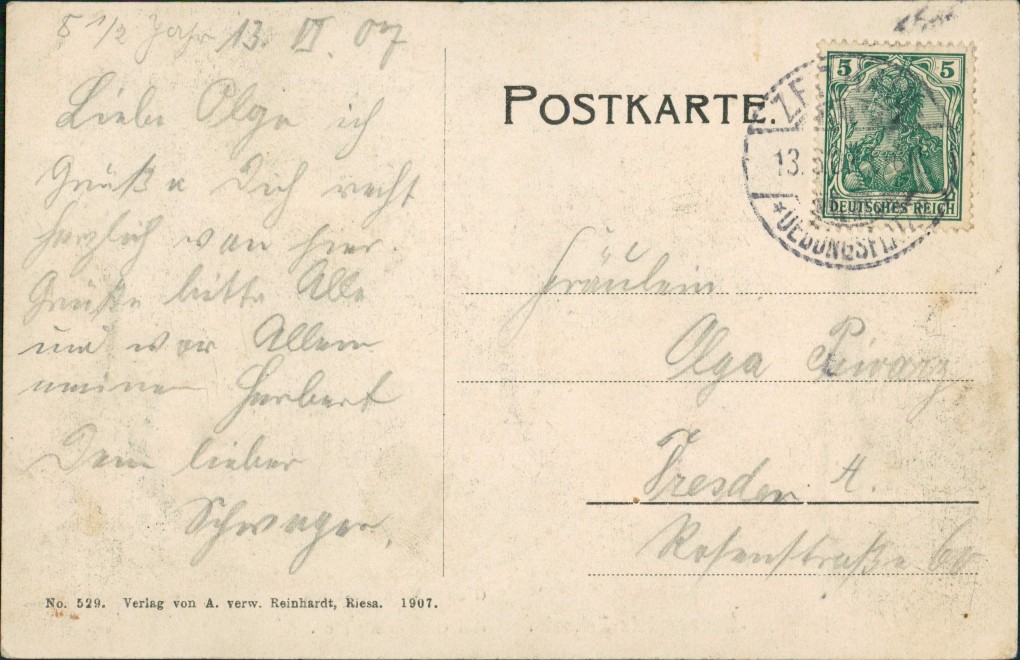 5 1/2 Jahr 13. VI. 07
Liebe Olga ich
Grüße Dich recht
herzlich von hier.
Grüße bitte Alle
und vor Allem
meinen Herbert
Dein lieber
Schwager.
No. 529. Verlag von A. verw. Reinhardt, Riesa. 1907.
POSTKARTE.
5 5
DEUTSCHES REICH
13.
Fräulein
Olga
Dresden A.
Rosenstraße 60